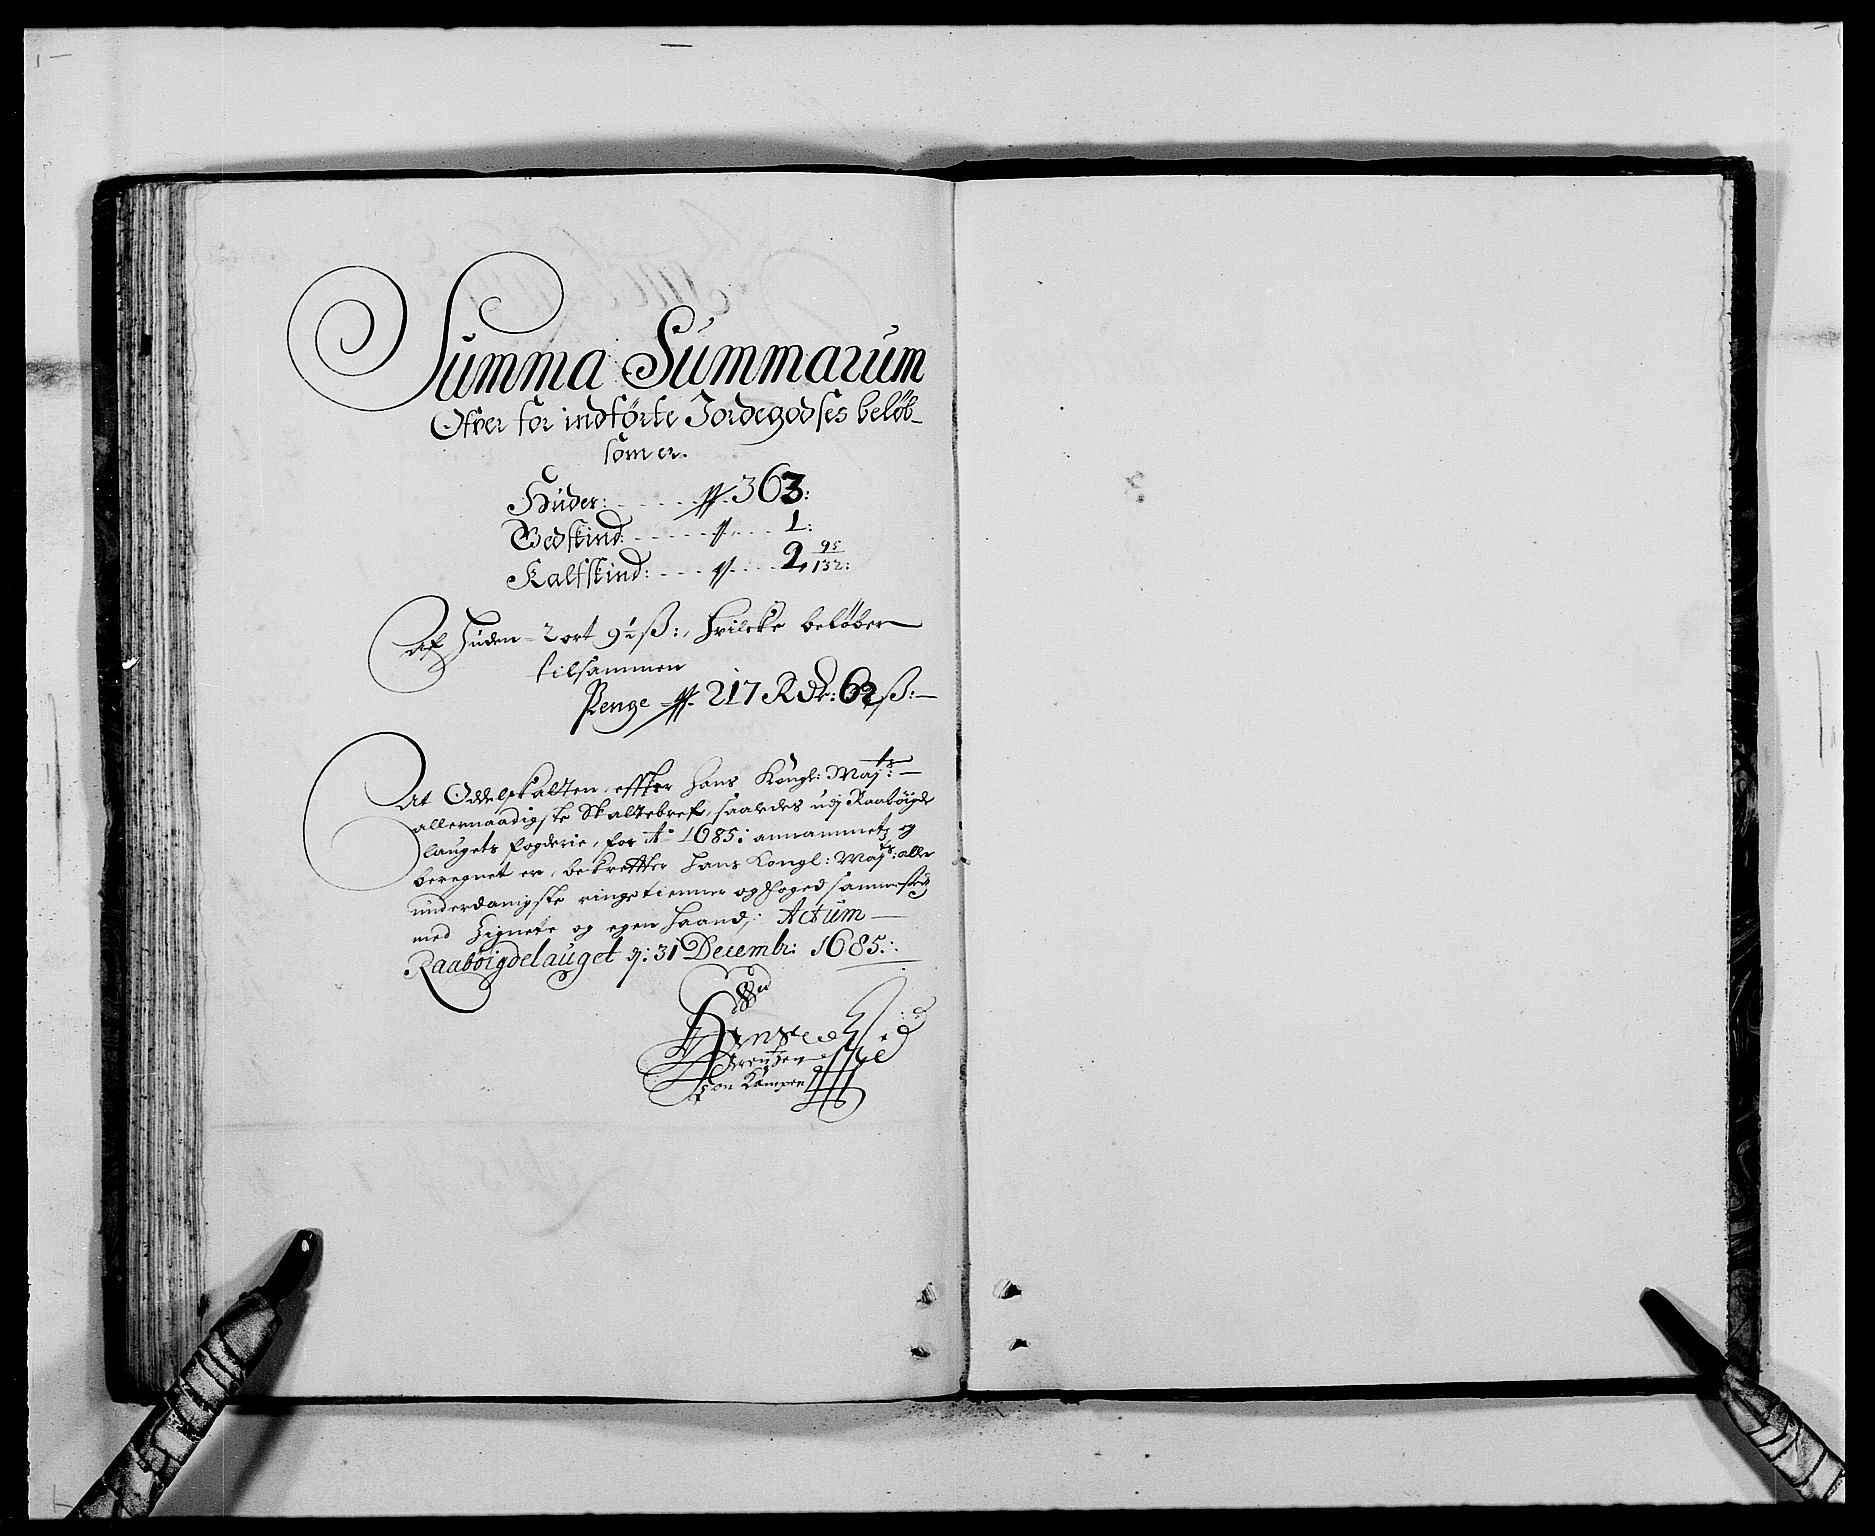 Summa Summarum
Ofver for indførte Jordegodses beløb
som er.
Huder: 363:
Bedskind 1:
Kalfskind: 2 95/132:
Af Huden 2 ort 9½ ß:, hvilcke beløber
tilsammen
Penge 217 Rdr: 62 ß:
At Oddelskatten, effter Hans Kongl: Maj:ts
allernaadigste Skattebref, saaledes udj Raabøigde
laugets fogderie, for A° 1685: annammet og
beregnet er, bekreffter Hans Kongl: Maj:ts aller
underdanigste ringe tienner og Foged sammested
med Zignete og egen haand: Actum
Raabøigdelauget d: 31 Decembr: 1685:
von Kampen